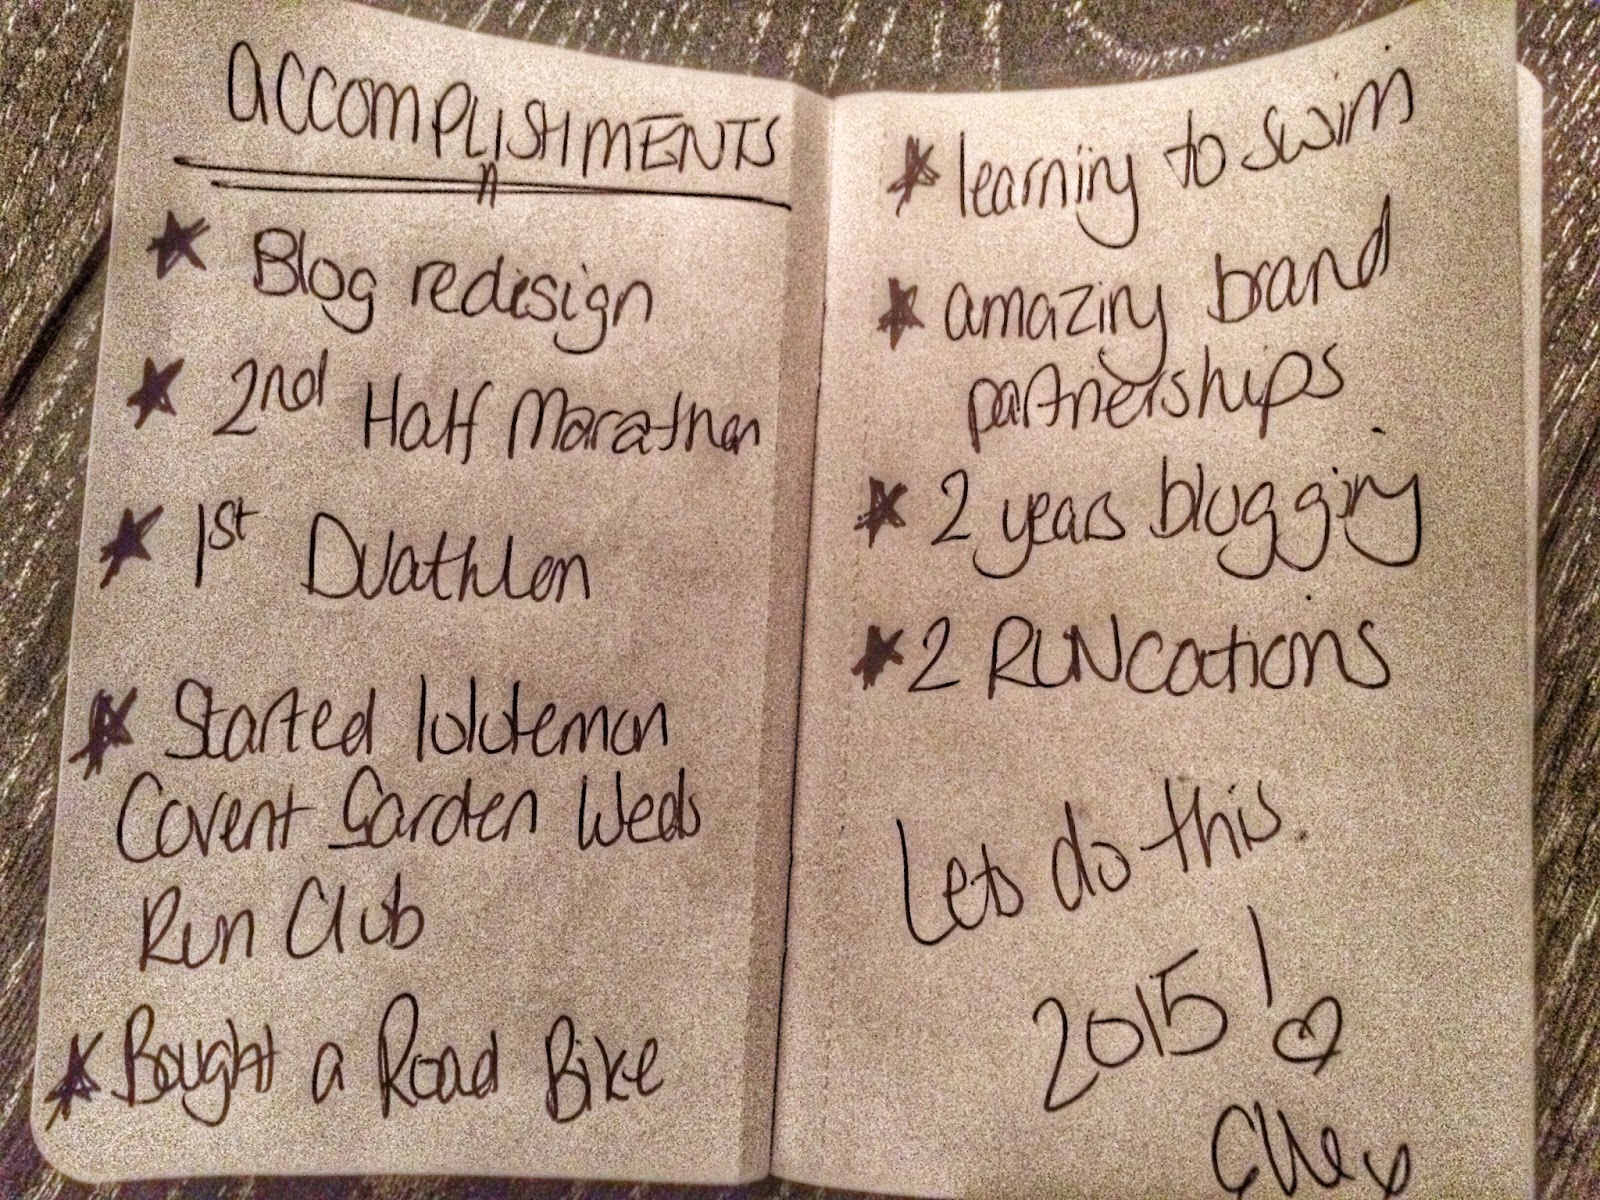 aCCOMPLISHMENTS
Blog redisign
2nd Half Marathon
1st Duathlon
Started lululemon
Covent Garden Weds
Run Club
Bought a Road Bike
learning to swim
amazing brand
partnerships
2 years blogging
2 RUNcations
Lets do this.
2015!